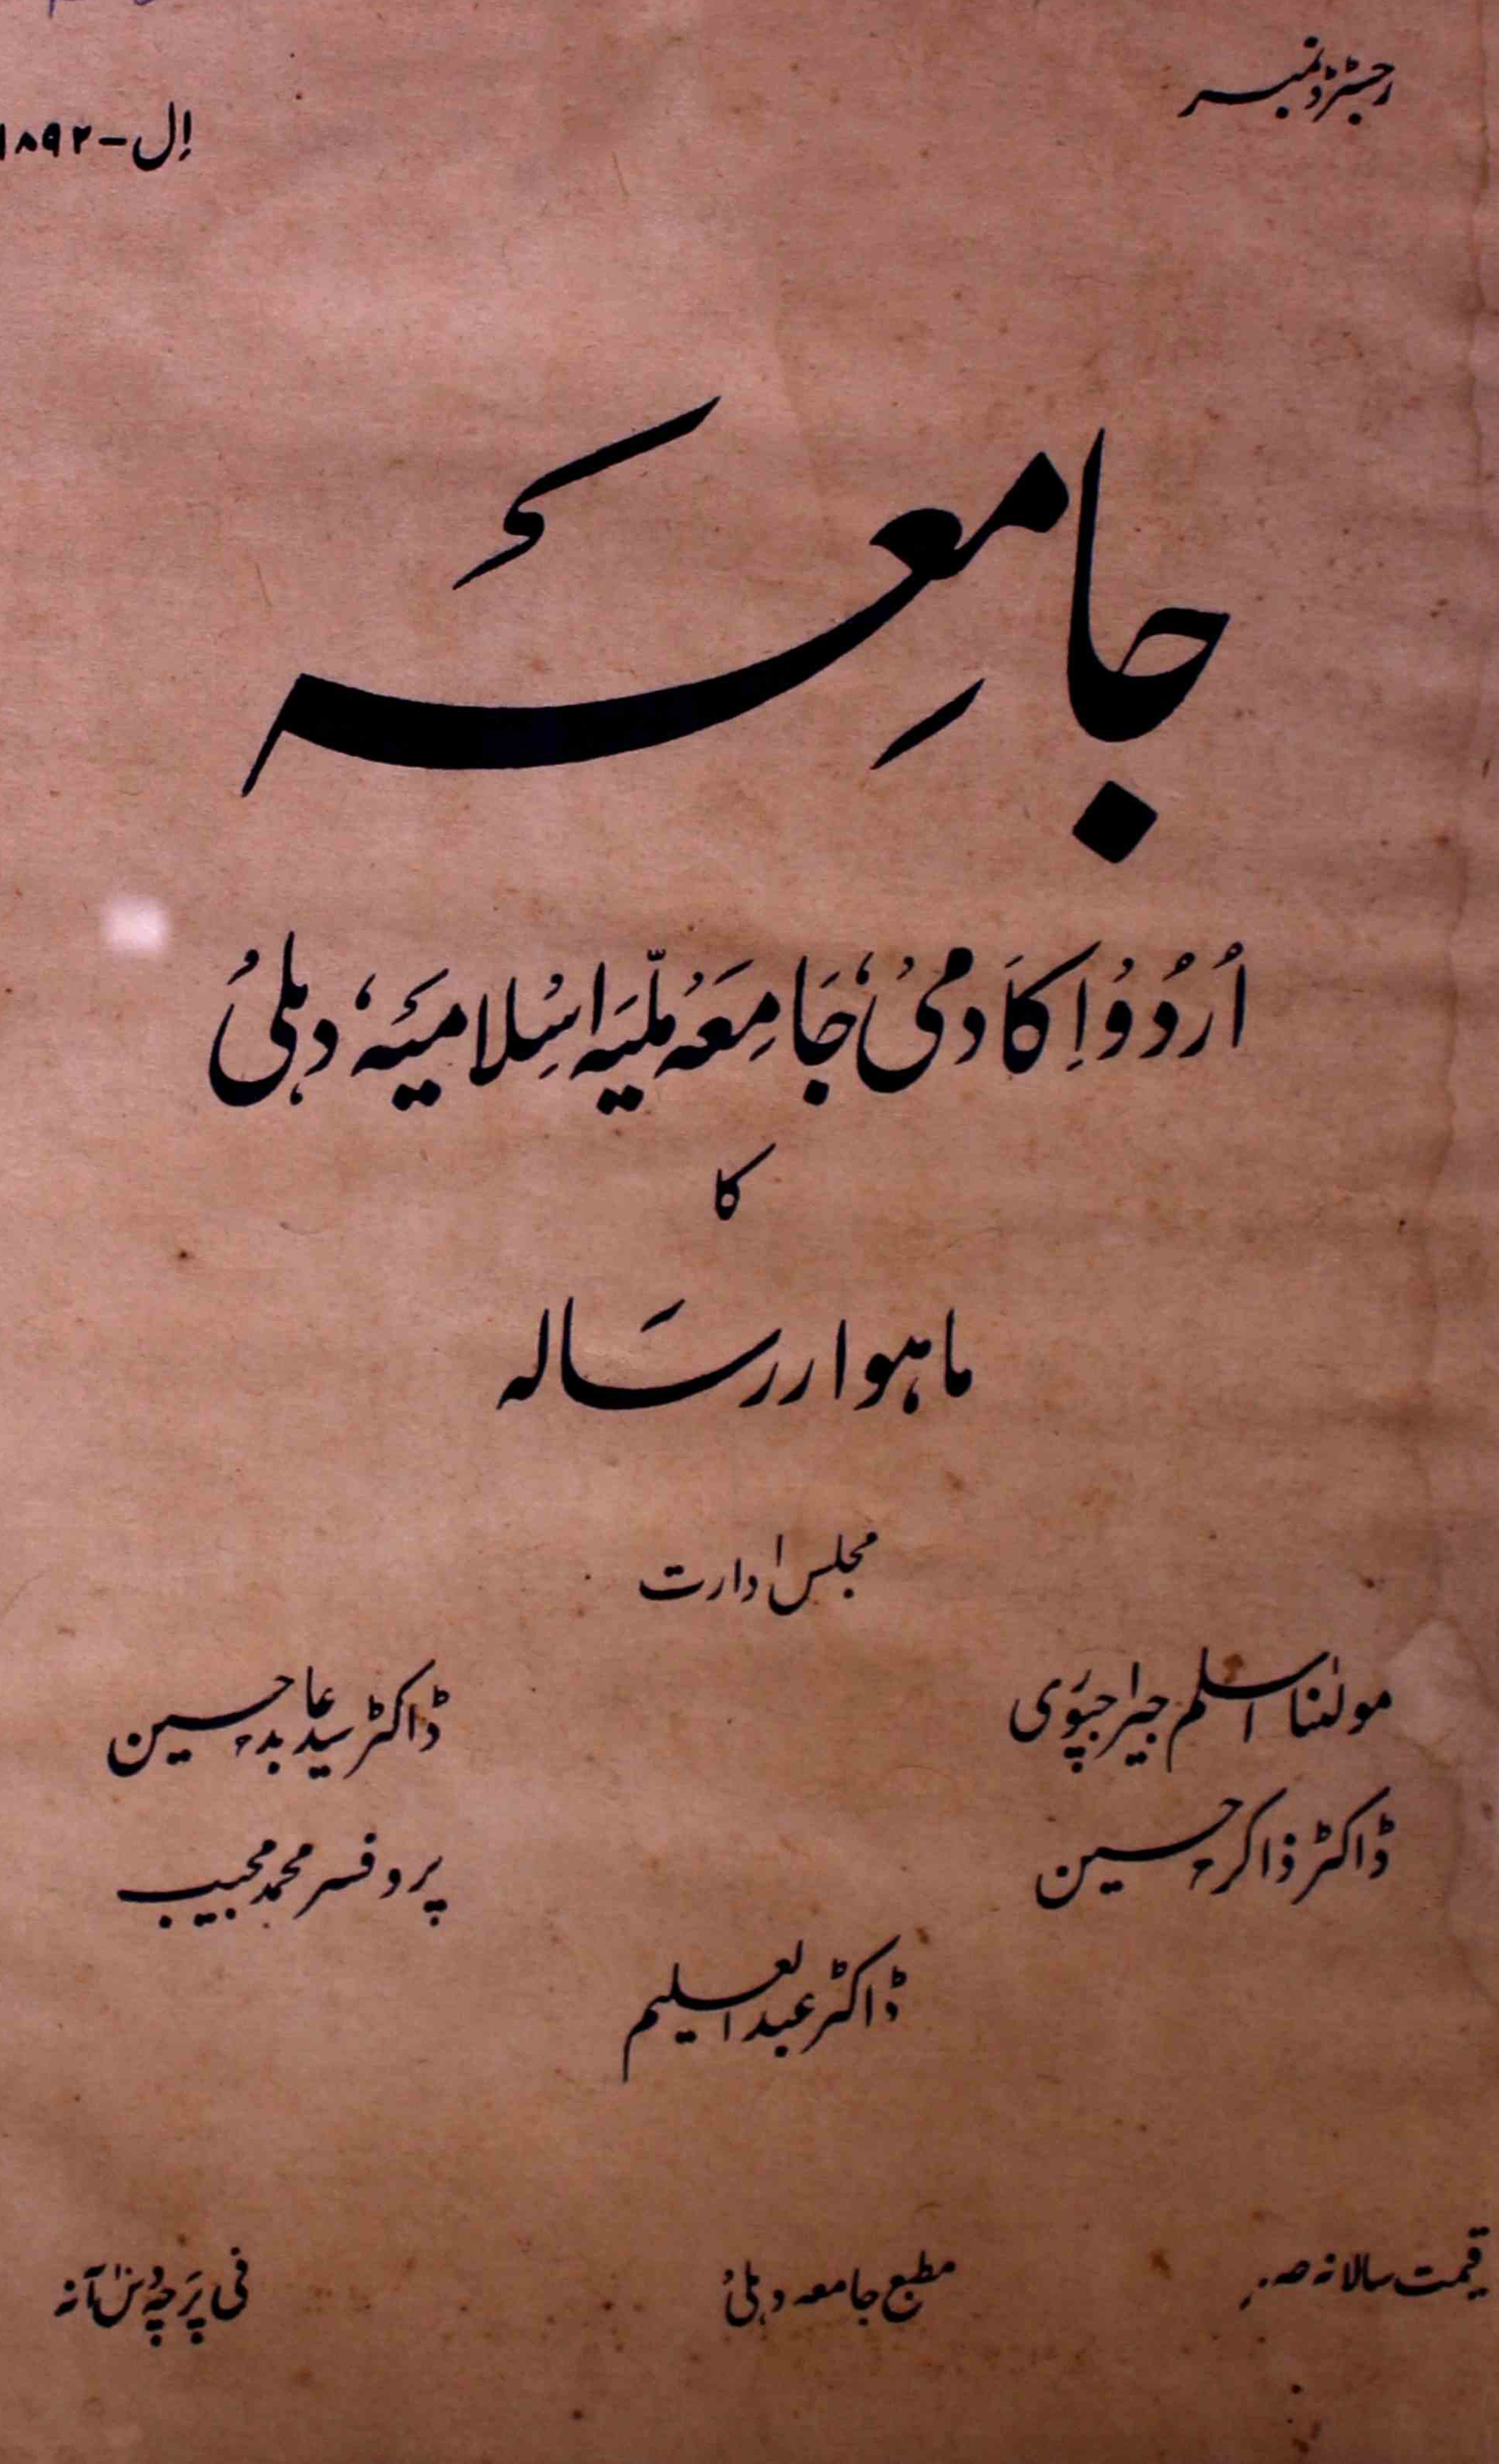 رجسٹرڈ نمبر
اِل - ۱۸۹۲
جامِعَہ
اُرْدُوْ اِکَادمیْ، جَامِعَہْ ملّیَہ اسْلامیَہ، دہلیْ
کا
ماہوار رسَالہ
مجلس ادارت
مولٰنا اسلم جیراجپوری ڈاکٹر سید عابد حسین
ڈاکٹر ذاکر حسین پروفسر محمد مجیب
ڈاکٹر عبد العلیم
قیمت سالانہ صہ مطبع جامعہ دہلی فی پَرچہ آنہ